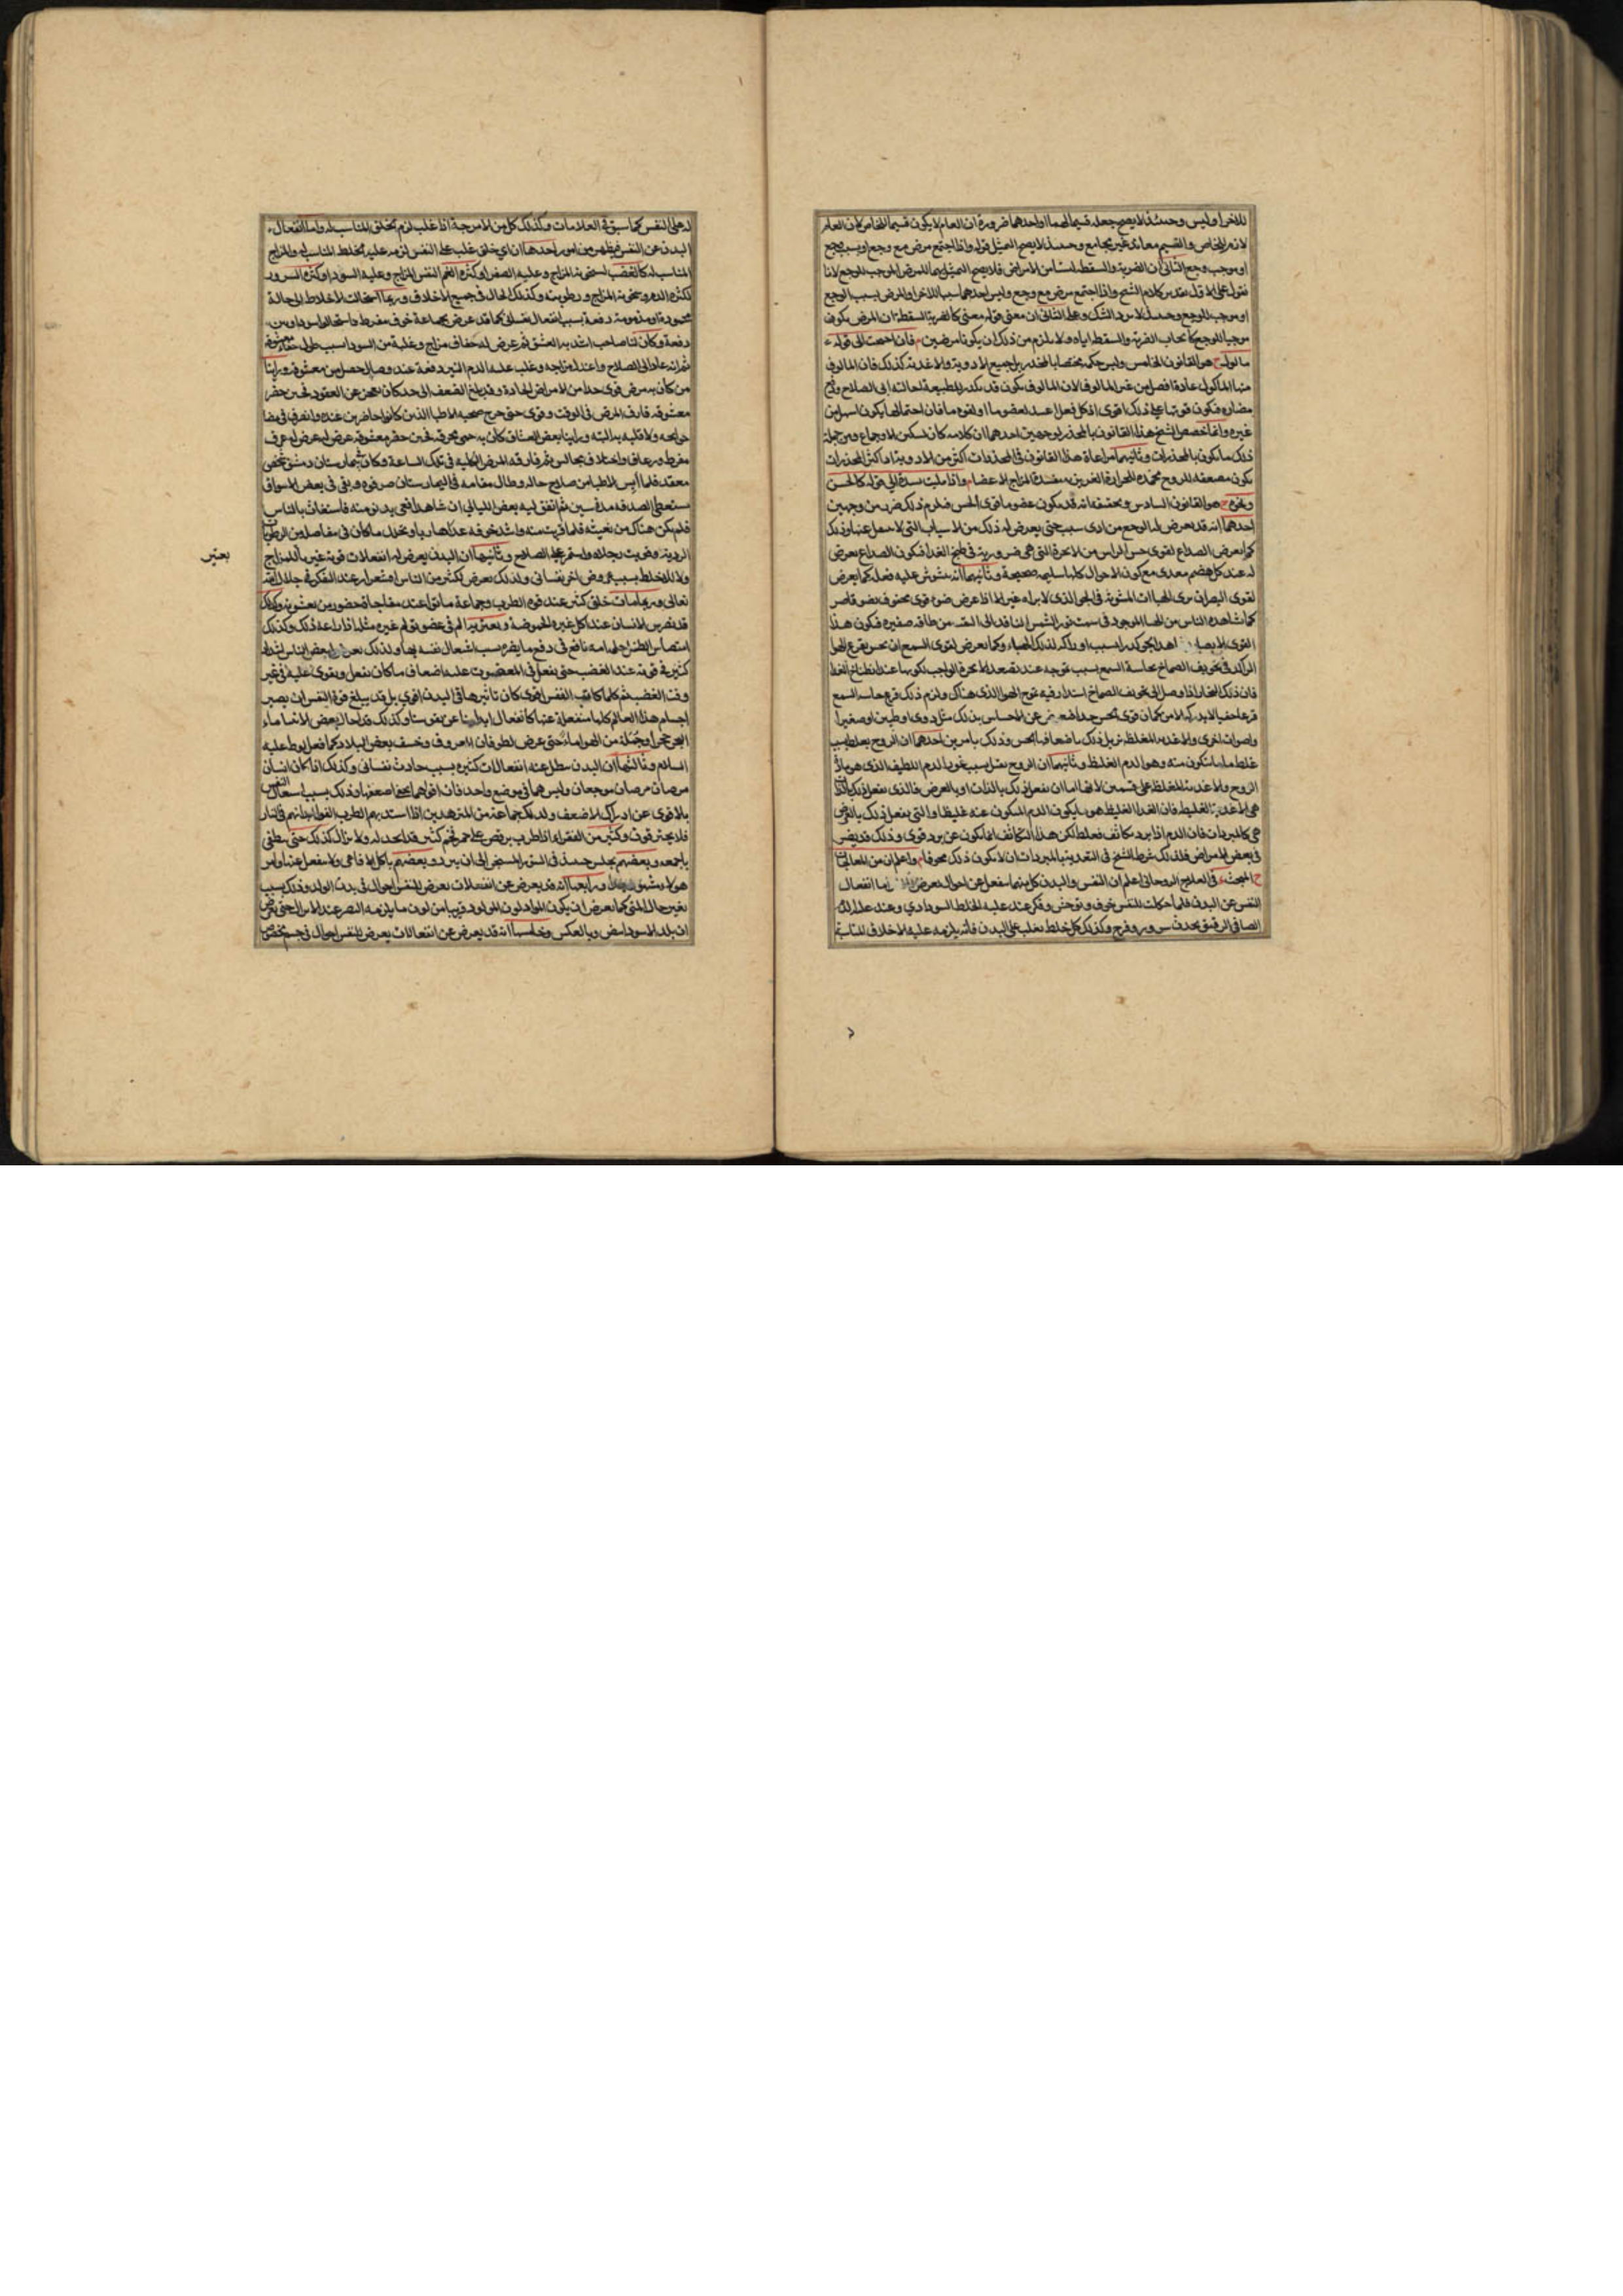 للاخر او ليس وحينئذ لا يصح جعله قسيما لهما او لاحدهما ضرورة ان العام لا يكون قسيما للخاص كان العام
لازم للخاص والقسيم معاند غير مجامع وحينئذ لا يصح التمثيل قوله واذا اجتمع مرض مع وجع او سبب وجع
او موجب وجع الثاني ان الضربة والسقطة ليستا من الامراض فلا يصح التمثيل بهما للمرض الموجب للوجع لانا
نقول على الاول عند كلام الشيخ واذا اجتمع مرض مع وجع وليس احدهما سببا للاخر او المرض يسبب الوجع
او موجب للوجع وحينئذ لا يرد الشك وعلى الثاني ان معنى قوله معنى كالضربة السقطة ان المرض يكون
موجبا للوجع كايجاب الضربة والسقطة اياه ولا يلزم من ذلك ان يكونا مرضين فان احتجت الى قوله
مالوف هو القانون الخامس وليس حكمه مختصا بالمخدر بل جميع الادوية والاغذية كذلك فان المالوف
منها المأكول عادة افضل من غير المالوف لان المالوف يكون قد الطبيعة لحالته الى الصلاح
مضاره فيكون قوتها على ذلك اقوى اذ كل فعل لعضو ما او لقوة ما فان احتمالها يكون اسهل من
غيره وانما خصص الشيخ هذا القانون بالمخدر لوجهين احدهما ان كلامه كان تسكين الاوجاع ومن جملة
ذلك ما يكون بالمخدرات وثانيهما مراعاة هذا القانون في المخدرات اكثر من الادوية اذ اكثر المخدرات
يكون مضعفه للروح مخمدة للحرارة الغريزية مفسدة لمزاج الاعضاء واذا الى قوله كالحسن
ونحوه هو القانون السادس وتحقيقه انه قد يكون عضو ما قوي الحس فيلزم ذلك ضرر من وجهين
احدهما انه قد يعرض له الوجع من ادنى سبب حتى يعرض له ذلك من الاسباب التي لا ينفعل عنها وذلك
كما يعرض الصداع لقوي حس الراس من الابخرة التي هي ضرورية في طبخ الغذا فيكون الصداع يعرض
له عند كل هضم معدي مع كون الاحوال كلها سليمة صحيحة وثانيهما انه يشوش عليه فعله كما يعرض
لقوي البصر ان يرى الهباات المبثوثة في الجو الذي لا يراه غيره الا اذا عرض ضوء قوي محفوف بضوء قاصر
كما نشاهده الناس من الهبا الموجود في سمت نور الشمس النافذ الى البيت من طاقة صغيرة فيكون هذا
القوي الابصار الجو كدرا بسبب ادراكه لذلك الهباء وكما يعرض لقوي السمع ان يحس بقرع الهوا
الراكد في تجويف الصماخ بحاسة السمع بسبب تموجه عند تصعد الابخرة الواجب تكونها عند الغذا
فان ذلك البخار اذا وصل الى تجويف الصماخ استدار فيه تموج الهوا الذي هناك ولزم ذلك قرع حاسة السمع
قرعا خفيا لا يدركه الا من كان قوي الحس جدا عن الاحساس بذلك مثل دوي او طنين او صفير
واصوات اخرى والاغذية المغلظة تزيل ذلك باضعافها الحس وذلك بامرين احدهما ان الروح يغلظ بسبب
غلظ ما يتكون منه وهو الدم الغليظ وثانيهما ان الروح يقل بسبب الدم اللطيف الذي هو مادة
الروح والاغذية المغلظة على قسمين لانها اما ان تفعل ذلك بالذات او بالعرض فالذي تفعل ذلك بالذات
هي الاغذية الغليظة فان الغذا الغليظ هو ما يكون الدم المتكون عنه غليظا والتي تفعل ذلك بالعرض
هي كالمبردات فان الدم اذا برد تكاثف فغلظ لكن هذا التكاثف انما يكون عن برد قوي وذلك قد يضر
في بعض الامراض فلذلك شرط الشيخ في التغذية بالمبردات ان لا يكون ذلك مخوفا واعلم ان من المعالجات
المبحث في العلاج الروحاني اعلم ان النفس والبدن كل منهما ينفعل عن احوال تعرض اما انفعال
النفس عن البدن فلما يحدث للنفس خوف وتوحش وفكر عند غلبة الخلط السوداوي وعند غلبة الدم
الصافي الرقيق يحدث سرور وفرح وكذلك كل خلط يغلب على البدن فانه يلزمه غلبة الاخلاق المناسبة
له على النفس كما سبق في العلامات وكذلك كل من الامزجة اذا غلب لزم تخلق المناسب له واما انفعال
البدن عن النفس فيظهر من امور احدها ان اي خلق غلب على النفس لزمه غلبة الخلط المناسب له والمزاج
المناسب له كالغضب لسخونة المزاج وغلبة الصفرا وكثرة الغم اليبس المزاج وغلبة السودا وكثرة السرور
لكثرة الدم وسخونة المزاج ورطوبته وكذلك الحال في جميع الاخلاق وربما استحالت الاخلاط الى حالة
محمودة او مذمومة دفعة بسبب انفعال نفساني كما قد عرض لجماعة خوف مفرط فاستحالوا سوداويين
دفعة وكان لنا صاحب اشتد به العشق ثم عرض له جفاف مزاج وغلبة من السودا بسبب طول جفاء معشوقه
ثم انه عاد الى الصلاح واعتدل مزاجه وغلب عليه الدم النير دفعة عند وصال حصل من معشوقه وراينا
من كان به مرض قوي جدا من الامراض الحادة وقد بلغ الضعف الى حد كان يعجز عن القعود فحين حضر
معشوقه فارق المرض في الوقت وقوي حتى خرج صحبة الاطبا الذين كانوا حاضرين عنده وانصرف في قضا
حوائجه ولا قلبة به البتة وراينا بعض العشاق كان به حمى محرقة فحين حضر معشوقه عرض له عرق
مفرط ورعاف واختلاف مجالس ثم فارقه المرض بالكلية في تلك الساعة وكان بيمارستان دمشق شخص
مقعد فلما أيس الاطبا من صلاح حاله وطال مقامه في البيمارستان صرفوه وبقي في بعض الاسواق
يستعطي الصدقة مدة سنين ثم اتفق ليه بعض الليالي ان شاهد افعى يدنو منه فاستغاث بالناس
فلم يكن هناك من يغيثه فلما قربت منه واشتد خوفه عدا هاربا وتحلل ما كان في مفاصله من الرطوبات
الردية وقويت رجلاه واستمر على الصلاح وثانيها ان البدن يعرض له انفعالات قوية غير المزاج
ولا للخلط بسبب عروض امر نفساني ولذلك يعرض لكثير من الناس اقشعرار عند الفكر في جلال الله
تعالى وربما مات خلق كثير عند قوة الطرب وجماعة ماتوا عند مفاجاة حضور من يعشقونه وكذلك
قد يضرس الانسان عند اكل غيره الحموضة و الم في عضو تالم غيره مثله اذا راعه ذلك وكذلك
استحسان الطفل نافع في دفع ما يضره بسبب انفعال نفسه بها ولذلك يعرض لبعض الناس اشتداد
كثير في قوته عند الغضب حتى يفعل في المغضوب عليه اضعاف ما كان يفعل ويقوى عليه في غير
وقت الغضب ثم كلما كانت النفس اقوى كان تاثيرها في البدن اقوى بل قد يبلغ قوة النفس ان يصير
اجسام هذا العالم كلها منفعلة عنها كانفعال ابداننا عن نفوسنا وكذلك قد احال بعض الانبيا ماء
البحر حجرا وجملة من الهوا ماء حتى عرض الطوفان المعروف وخسف بعض البلاد كما فعل لوط عليه
السلام وثالثها ان البدن يبطل عنه انفعالات كثيرة بسبب حادث نفساني وكذلك اذا كان انسان
مرضان موجعان وليس هما في موضع واحد فان اقواهما يخفي اضعفهما وذلك بسبب اشتغال النفس
بالاقوى عن ادراك الاضعف ولذلك جماعة من المتزهدين اذا استد بهم الطرب القوا ابدانهم في النار
فلا يحترقون وكثير من الفقراء اذا طرب يرقص على جمر فحم كثير قد اعد له ولا يزال كذلك حتى ينطفي
باجمعه وبعضهم يجلس حينئذ في التنور المسخن الى ان يبرد وبعضهم ياكل الافاعي ولا ينفعل عنها وامر
هؤلاء مشهور ورابعها انه قد يعرض عن انفعالات تعرض للنفس احوال في بدن الولد وذلك بسبب
تغير حال المني كما يعرض ان يكون المولود لون المولود قريبا من لون ما يلزمه البصر عند الانزال حتى يعرض
ان يلد الاسود ابيض وبالعكس وخامسها انه قد يعرض عن انفعالات تعرض للنفس احوال في جسم شخص